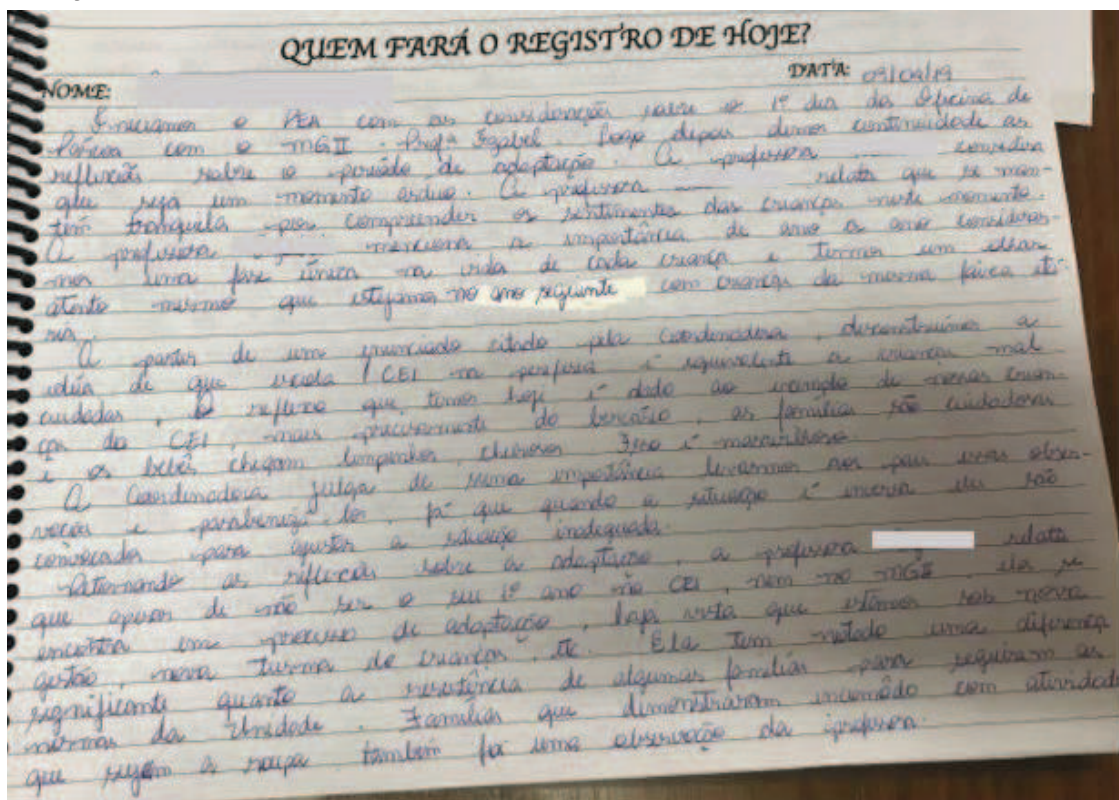 QUEM FARÁ O REGISTRO DE HOJE?
NOME: DATA: 09/04/19
Iniciamos o PEA com as considerações sobre o 1º dia da Oficina de
com o MGII - Profª Izabel. Logo depois demos continuidade as
reflexões sobre o período de adaptação. A professora considera
que seja um momento árduo. A professora relata que se man-
tém tranquila por compreender os sentimentos das crianças neste momento.
A professora menciona a importância de ano a ano considerar-
mos uma fase única na vida de cada criança e termos um olhar
atento mesmo que estejamos no ano seguinte com crianças da mesma faixa etá-
ria.
A partir de um enunciado citado pela Coordenadora, desconstruímos a
idéia de que escola / CEI na periferia é equivalente a crianças mal
cuidadas, reflexo que temos hoje é dado ao exemplo de nossas crian-
ças do CEI, mais precisamente do berçário, as famílias são cuidadosas
e os bebês chegam limpinhos, cheirosos. Isso é maravilhoso.
A Coordenadora julga de suma importância levarmos aos pais essas obser-
vações e parabenizá-los, já que quando a situação é inversa eles são
convocados para ajustar a situação inadequada.
Retornando as reflexões sobre a adaptação, a professora relata
que apesar de não ser o seu 1º ano no CEI, nem no MGII, ela se
encontra em processo de adaptação, haja vista que estamos sob nova
gestão, nova turma de crianças, etc. Ela tem notado uma diferença
significante quanto a resistência de algumas famílias para seguiram as
normas da Unidade. Famílias que demonstraram incomôdo com atividades
que sujem a roupa também foi uma observação da professora.